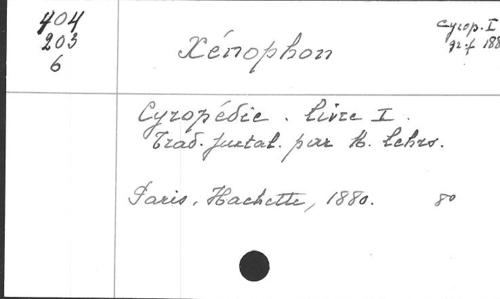 404
203
6
Cyrop. I
gr.f 188
Xénophon
Cyropédie. Livre I.
Trad. juxtal. par H. Lehrs.
Paris, Hachette, 1880. 8°